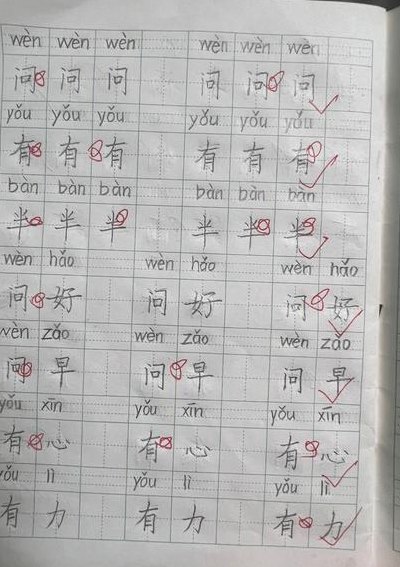 wèn wèn wèn wèn wèn wèn
问 问 问 问 问 问
yǒu yǒu yǒu yǒu yǒu yǒu
有 有 有 有 有 有
bàn bàn bàn bàn bàn bàn
半 半 半 半 半 半
wèn hǎo wèn hǎo wèn hǎo
问 好 问 好 问 好
wèn zǎo wèn zǎo wèn zǎo
问 早 问 早 问 早
yǒu xīn yǒu xīn yǒu xīn
有 心 有 心 有 心
yǒu lì yǒu lì yǒu lì
有 力 有 力 有 力